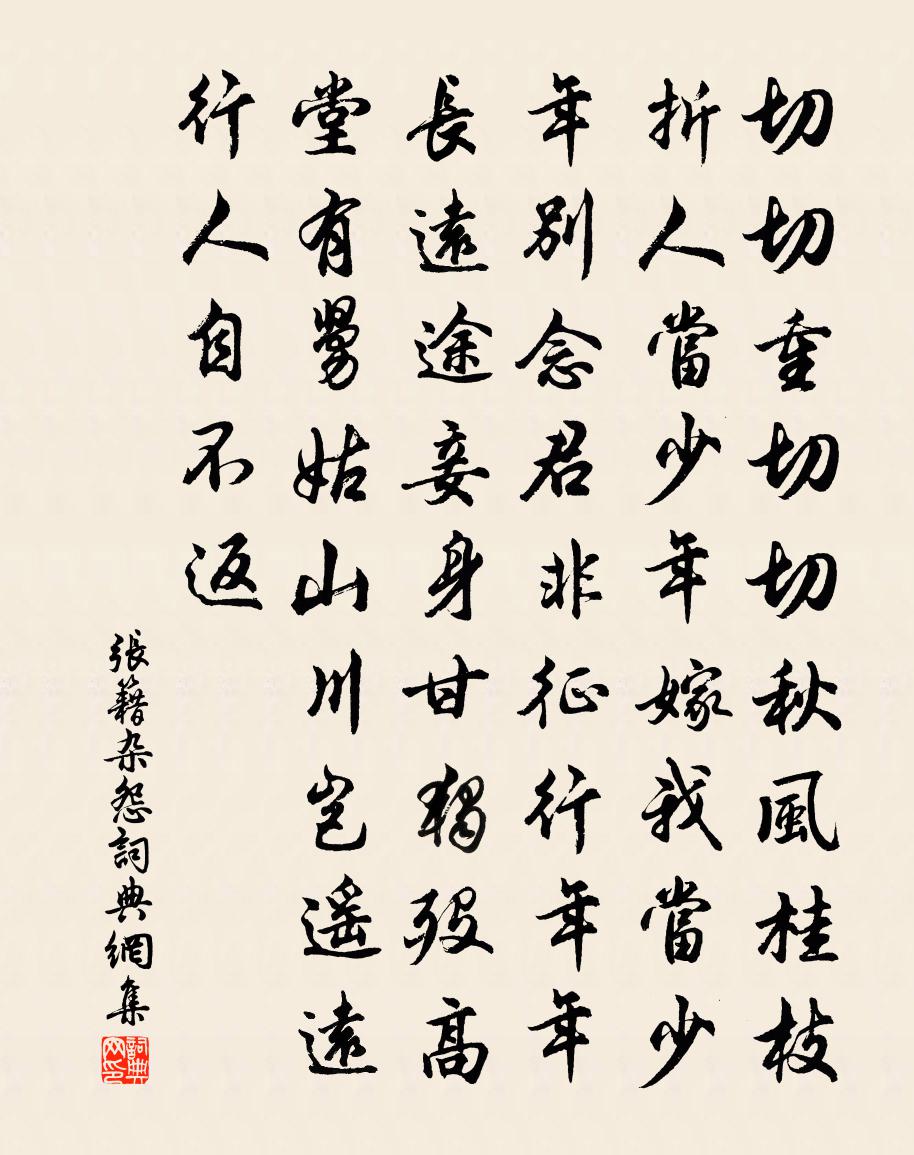 切切重切切秋風桂枝
折人當少年嫁我當少
年別念君非征行年年
長遠途妾身甘獨歿高
堂有舅姑山川豈遙遠
行人自不返
張籍杂怨詞典網集
詞典网印